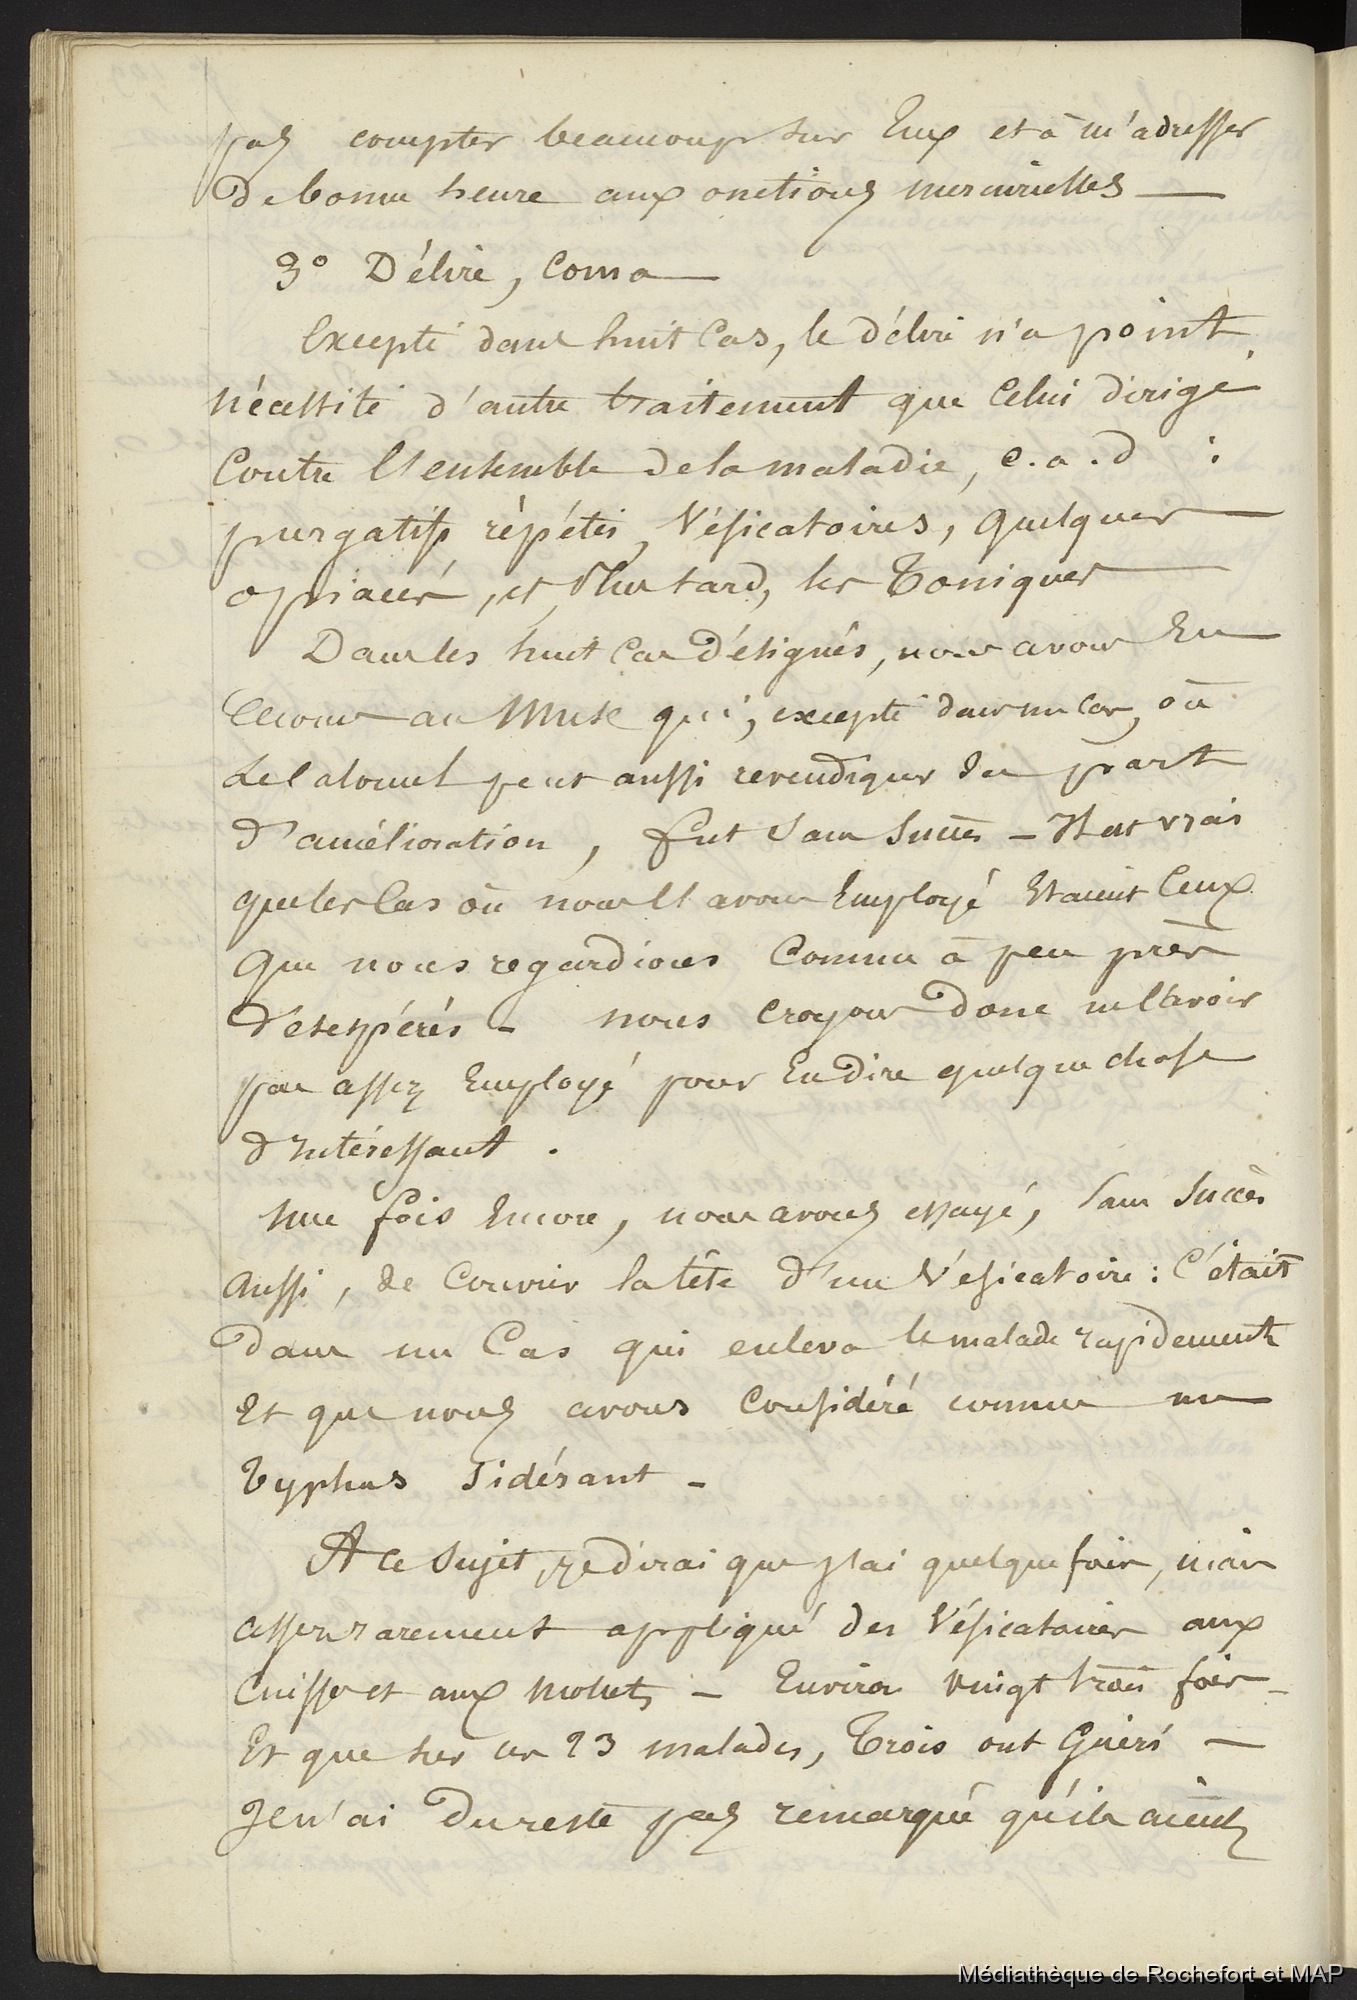 pas compter beaucoup sur Eux et à m'adresser
de bonne heure aux onctions mercurielles —
3° Délire, Coma —
Excepté dans huit Cas, le délire n'a point
nécessité d'autre traitement que Celui dirigé
Contre l'ensemble de la maladie, c.a.d :
purgatifs répétés, Vésicatoires, quelques —
opiacés, et plus tard, les Toniques —
Dans les huit Cas désignés, nous avons Eu
recours au Musc qui, excepté dans un Cas, où
le Calomel peut aussi revendiquer sa part
d'amélioration, fut sans succès — Il est vrai
que les Cas où nous l'avons Employé Etaient Ceux
que nous regardions Comme à peu près
désespérés — nous croyons donc ne l'avoir
pas assez Employé pour En dire quelque chose
d'intéressant .
Une fois Encore, nous avons essayé, sans succès
aussi, de Couvrir la tête d'un Vésicatoire : C'était
dans un Cas qui enleva le malade rapidement
Et que nous avons Considéré comme un
Typhus Sidérant —
A ce sujet, je dirai que j'ai quelque fois, mais
assez rarement appliqué des Vésicatoires aux
Cuisses et aux mollets — Environ vingt trois fois —
Et que sur ces 23 malades, Trois ont Guéri —
Je n'ai du reste pas remarqué qu'ils aient
Médiathèque de Rochefort et MAP